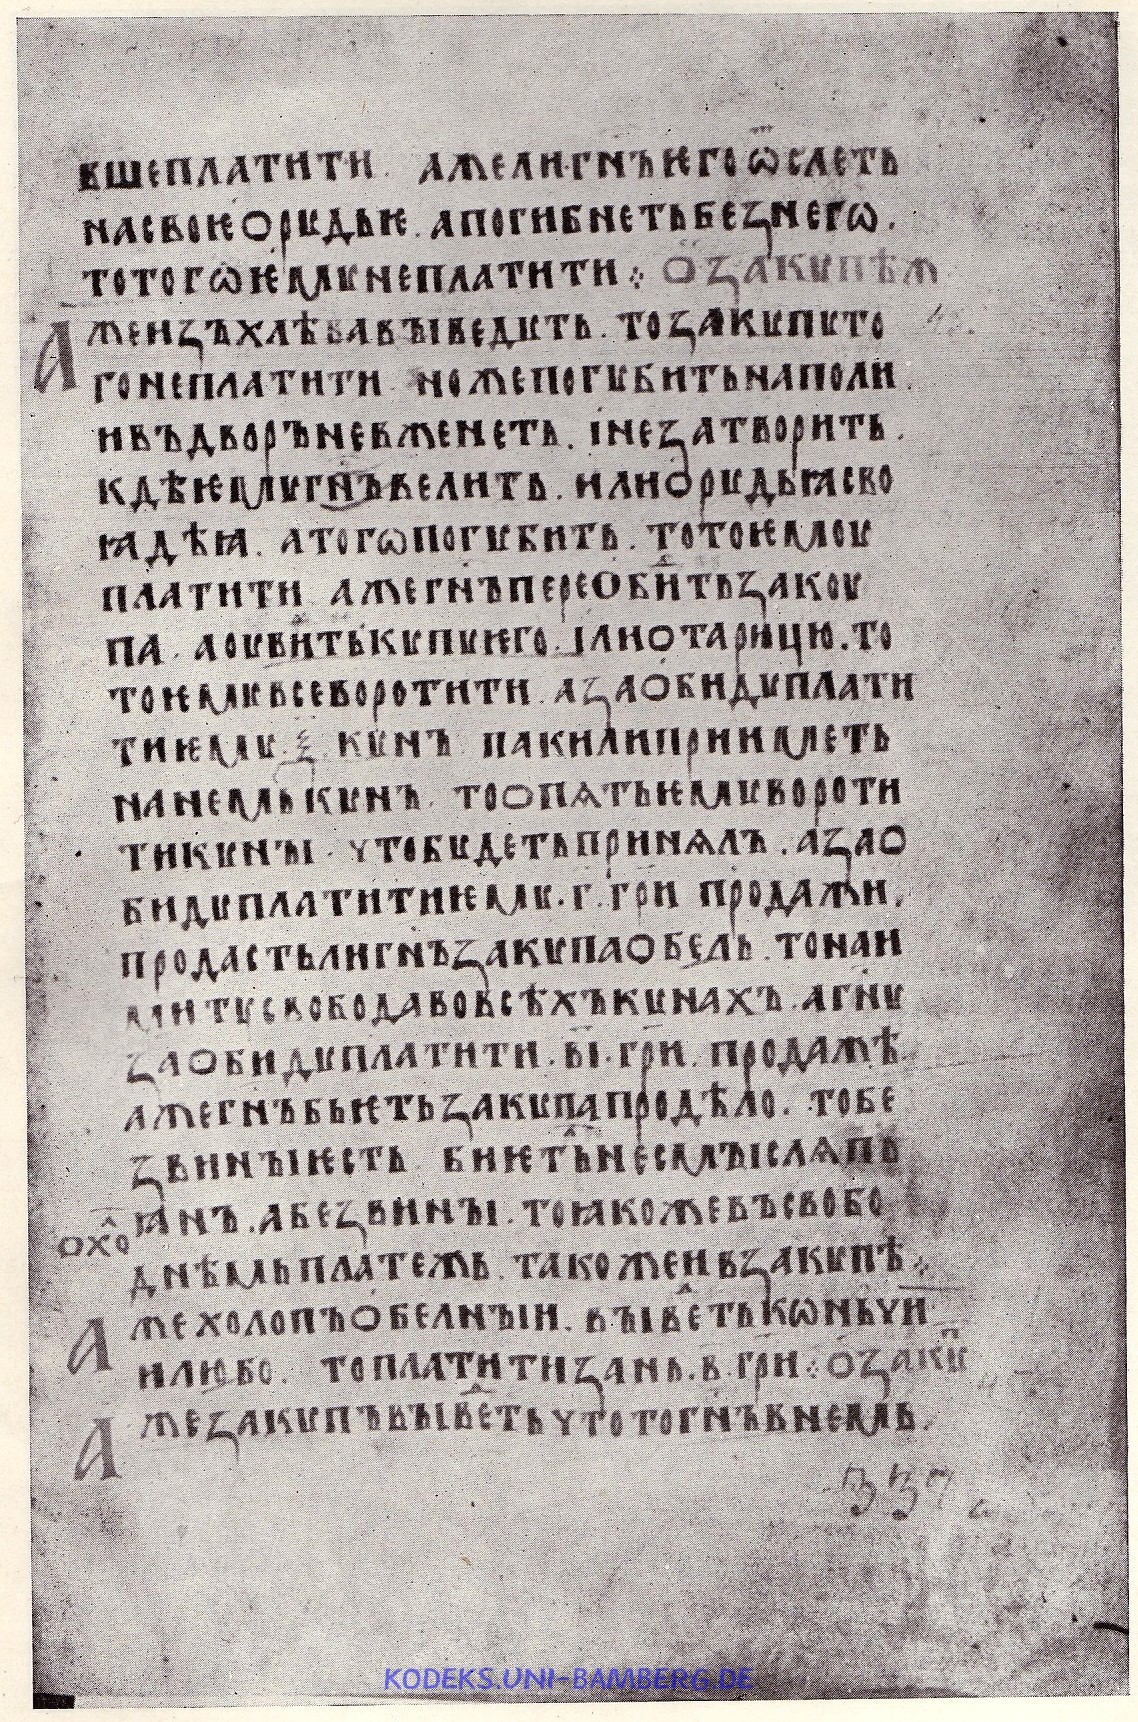 вшеплатити. ажели·гн҃ъѥгоѡ̅слеть
насвоѥорудьѥ. апогибнетьбезнегѡ.
тотогѡѥмунеплатити ⁘ озакупѣж
А жеизъхлѣвавъıведуть. тозакупуто
гонеплатити ножепогубитьнаполи.
ивъдворъневженеть. інезатворить.
кдѣѥмугн҃ъвелить. илиорудьꙗсво
ꙗдѣꙗ. атогѡпогубить. тотоѥмоу
платити ажегн҃ъпереобитьзакоу
па. аоувитькупуѥго. ілиотарицю. то
тоѥмувсеворотити. азаобидуплати
тиѥму. ѯ҃. кунъ пакилиприиметь
нанемькунъ. тоопѧтьѥмувороти
тикунъı. чтобудетьпринѧлъ. азао
бидуплатитиѥму. г҃. гр҃и продажи.
продастьлигн҃ъзакупаобель. тонаи
митусвободавовсѣхъкунахъ. агн҃у
заобидуплатити. в҃ı. гр҃и. продажѣ
ажегн҃ъбьѥтьзакупапродѣло. тобе
звинъıѥсть биѥтьнесмъıслѧпь
ꙗнъ. абезвинъı. тоꙗкожевъсвобо
охо҃ днѣмьплатежь. такожеивзакупѣ ⁘
А жехолопъобелнъıи. въıветькѡньчи
илюбо. топлатитизань. в҃. гр҃и ⁘ озакуп
А жезакупъвъıветьчтотогн҃ъвнемь.
337
KODEKS.UNI-BAMBERG.DE